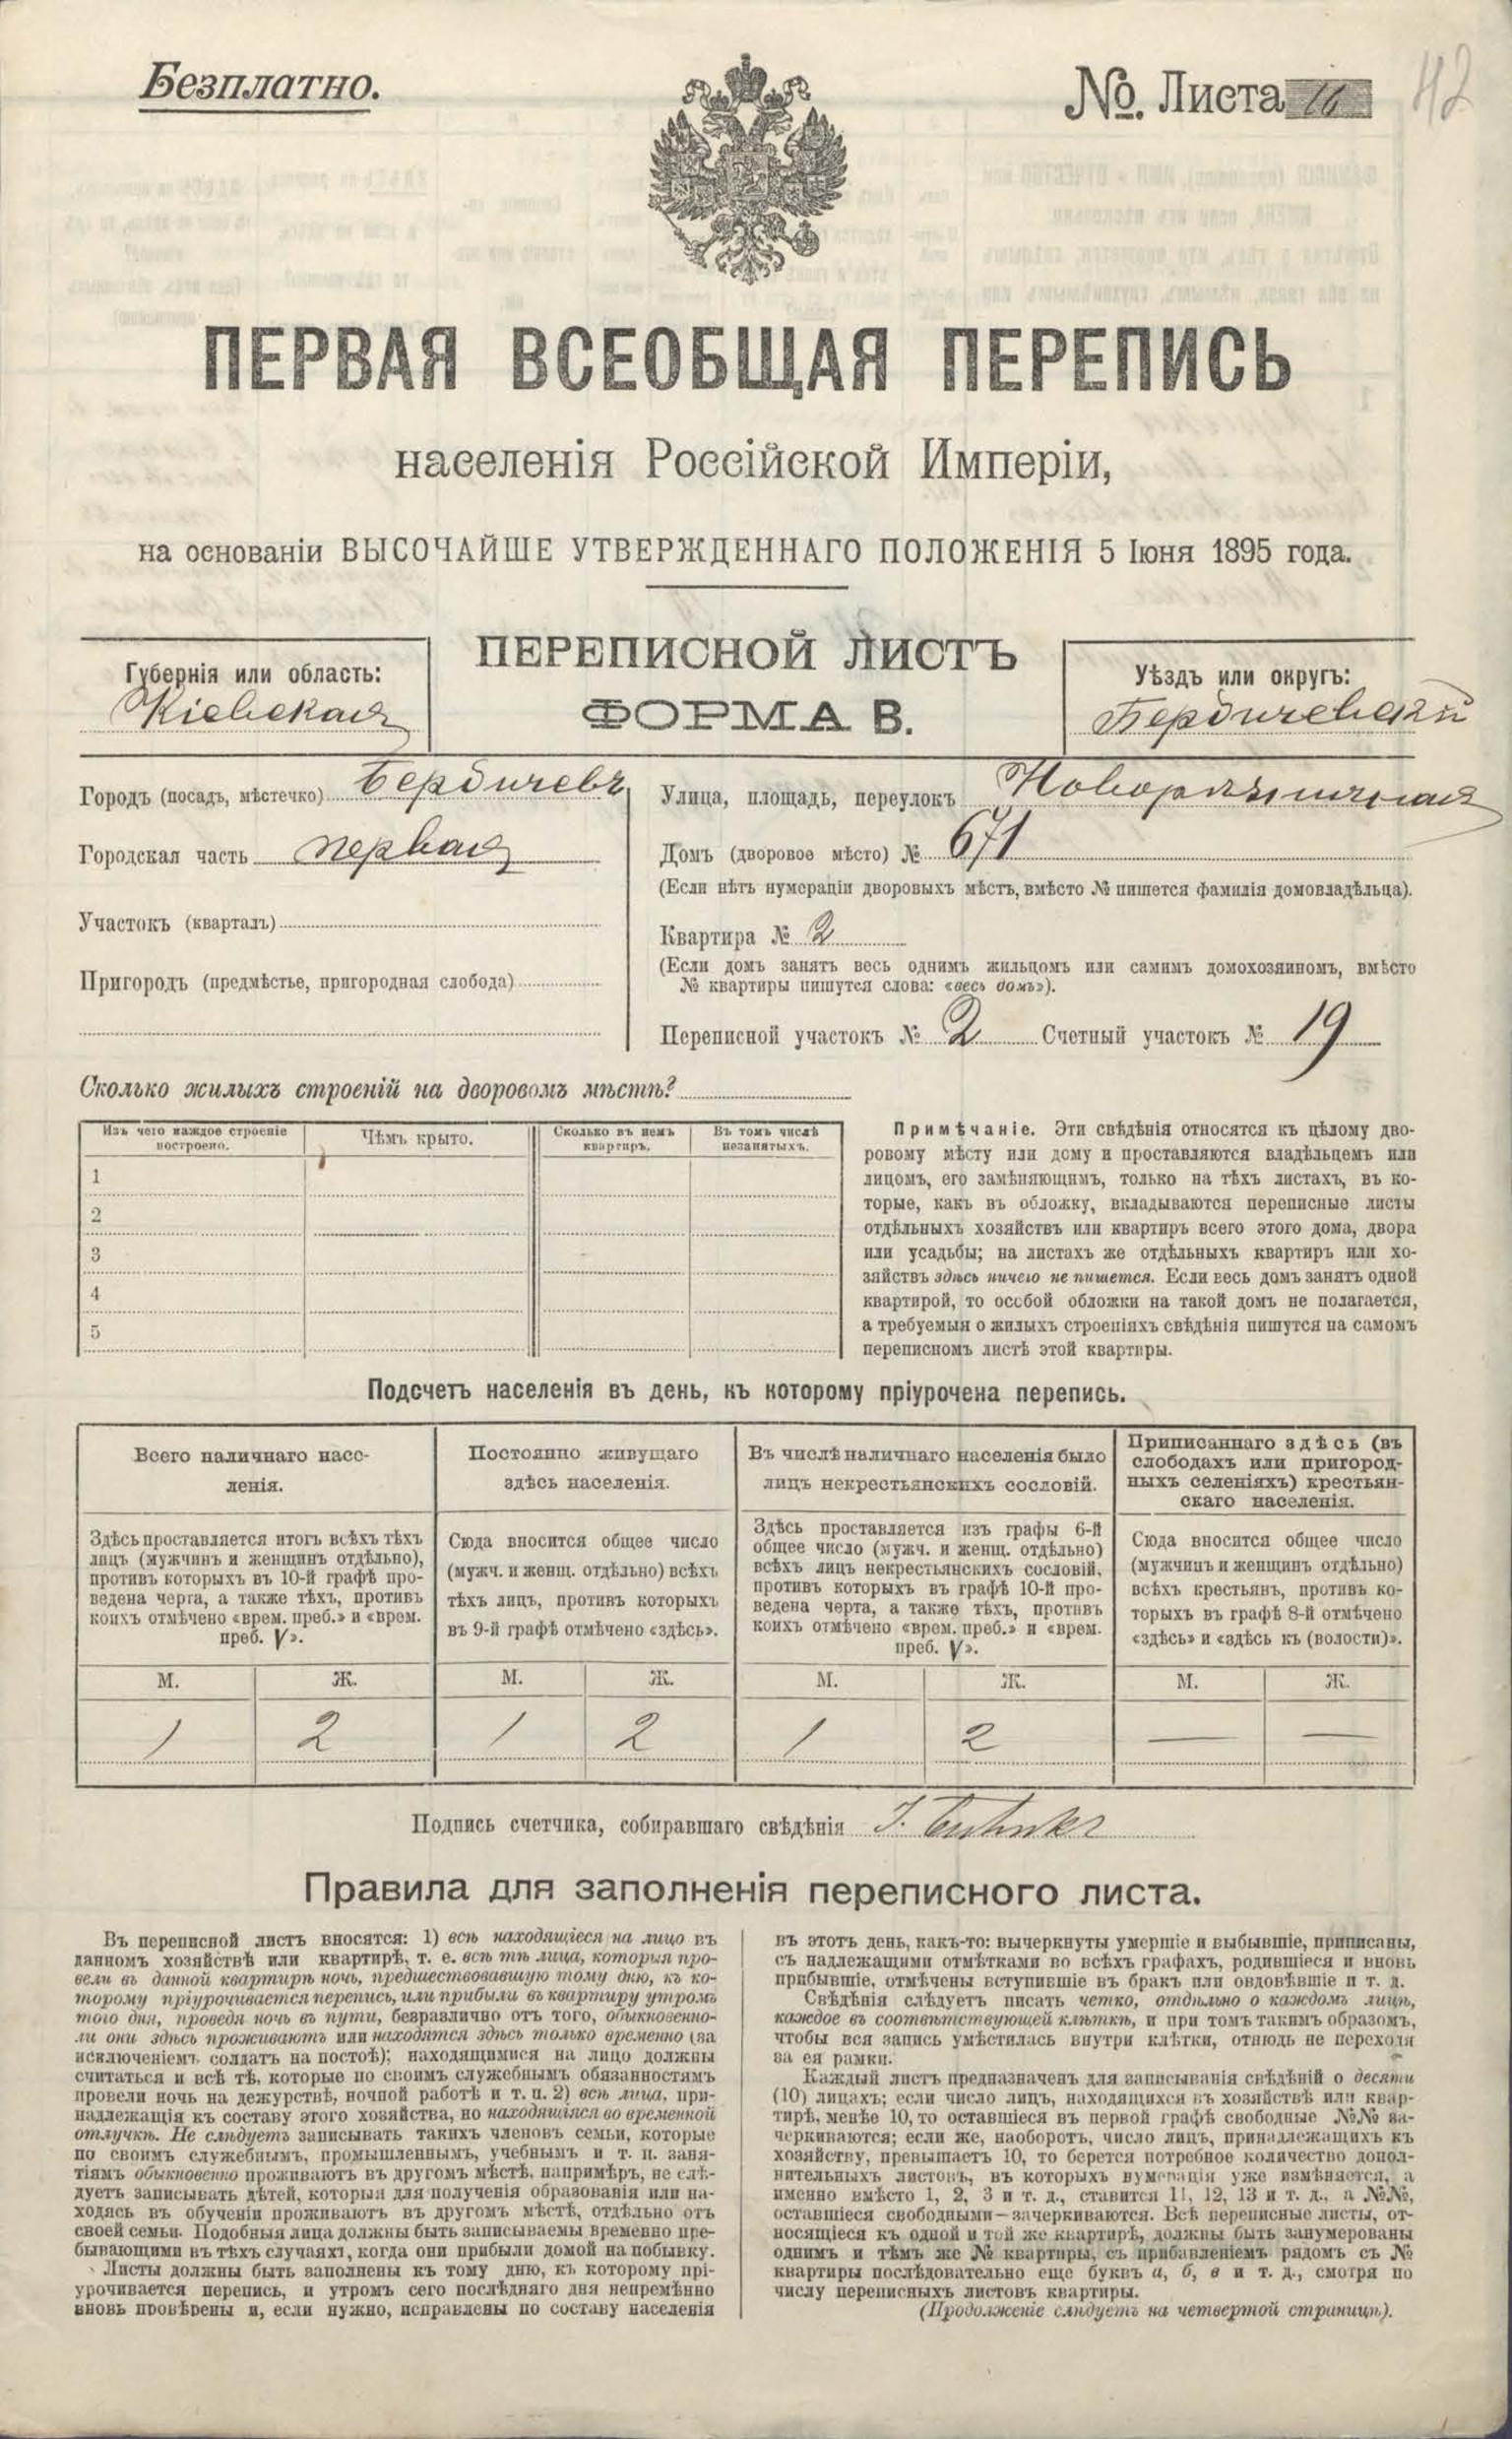 Безплатно.
№. Листа 16
42
ПЕРВАЯ ВСЕОБЩАЯ ПЕРЕПИСЬ
населенія Россійской Имперіи,
на основаніи ВЫСОЧАЙШЕ УТВЕРЖДЕННАГО ПОЛОЖЕНІЯ 5 Іюня 1895 года.
Губернія или область:
Кіевская
ПЕРЕПИСНОЙ ЛИСТЪ
ФОРМА В.
Уѣздъ или округъ:
Бердичевскій
Городъ (посадъ, мѣстечко) Бердичевъ
Городская часть первая
Участокъ (кварталъ)
Пригородъ (предмѣстье, пригородная слобода)
Улица, площадь, переулокъ
Домъ (дворовое мѣсто) № 671
(Если нѣтъ нумераціи дворовыхъ мѣстъ, вмѣсто № пишется фамилія домовладѣльца).
Квартира № 2
(Если домъ занятъ весь однимъ жильцомъ или самимъ домохозяиномъ, вмѣсто
№ квартиры пишутся слова: «весь домъ»).
Переписной участокъ № 2 Счетный участокъ № 19
Сколько жилыхъ строеній на дворовомъ мѣстѣ?
Изъ чего каждое строеніе
построено.
Чѣмъ крыто.
Сколько въ немъ
квартиръ.
Въ томъ числѣ
незанятыхъ.
1
2
3
4
5
Примѣчаніе. Эти свѣдѣнія относятся къ цѣлому дво-
ровому мѣсту или дому и проставляются владѣльцемъ или
лицомъ, его замѣняющимъ, только на тѣхъ листахъ, въ ко-
торые, какъ въ обложку, вкладываются переписные листы
отдѣльныхъ хозяйствъ или квартиръ всего этого дома, двора
или усадьбы; на листахъ же отдѣльныхъ квартиръ или хо-
зяйствъ здѣсь ничего не пишется. Если весь домъ занятъ одной
квартирой, то особой обложки на такой домъ не полагается,
а требуемыя о жилыхъ строеніяхъ свѣдѣнія пишутся на самомъ
переписномъ листѣ этой квартиры.
Подсчетъ населенія въ день, къ которому пріурочена перепись.
Всего наличнаго насе-
ленія.
Постоянно живущаго
здѣсь населенія.
Въ числѣ наличнаго населенія было
лицъ некрестьянскихъ сословій.
Приписаннаго здѣсь (въ
слободахъ или пригород-
ныхъ селеніяхъ) крестьян-
скаго населенія.
Здѣсь проставляется итогъ всѣхъ тѣхъ
лицъ (мужчинъ и женщинъ отдѣльно),
противъ которыхъ въ 10-й графѣ про-
ведена черта, а также тѣхъ, противъ
коихъ отмѣчено «врем. преб.» и «врем.
преб. V».
Сюда вносится общее число
(мужч. и женщ. отдѣльно) всѣхъ
тѣхъ лицъ, противъ которыхъ
въ 9-й графѣ отмѣчено «здѣсь».
Здѣсь проставляется изъ графы 6-й
общее число (мужч. и женщ. отдѣльно)
всѣхъ лицъ некрестьянскихъ сословій,
противъ которыхъ въ графѣ 10-й про-
ведена черта, а также тѣхъ, противъ
коихъ отмѣчено «врем. преб.» и «врем.
преб. V».
Сюда вносится общее число
(мужчинъ и женщинъ отдѣльно)
всѣхъ крестьянъ, противъ ко-
торыхъ въ графѣ 8-й отмѣчено
«здѣсь» и «здѣсь къ (волости)».
М. Ж. М. Ж. М. Ж. М. Ж.
1 2 1 2 1 2 — —
Подпись счетчика, собиравшаго свѣдѣнія
Правила для заполненія переписного листа.
Въ переписной листъ вносятся: 1) всѣ находящіеся на лицо въ
данномъ хозяйствѣ или квартирѣ, т. е. всѣ тѣ лица, которыя про-
вели въ данной квартирѣ ночь, предшествовавшую тому дню, къ ко-
торому пріурочивается перепись, или прибыли въ квартиру утромъ
того дня, проведя ночь въ пути, безразлично отъ того, обыкновенно-
ли они здѣсь проживаютъ или находятся здѣсь только временно (за
исключеніемъ солдатъ на постоѣ); находящимися на лицо должны
считаться и всѣ тѣ, которые по своимъ служебнымъ обязанностямъ
провели ночь на дежурствѣ, ночной работѣ и т. п. 2) всѣ лица, при-
надлежащія къ составу этого хозяйства, но находящіяся во временной
отлучкѣ. Не слѣдуетъ записывать такихъ членовъ семьи, которые
по своимъ служебнымъ, промышленнымъ, учебнымъ и т. п. заня-
тіямъ обыкновенно проживаютъ въ другомъ мѣстѣ, напримѣръ, не слѣ-
дуетъ записывать дѣтей, которыя для полученія образованія или на-
ходясь въ обученіи проживаютъ въ другомъ мѣстѣ, отдѣльно отъ
своей семьи. Подобныя лица должны быть записываемы временно пре-
бывающими въ тѣхъ случаяхъ, когда они прибыли домой на побывку.
Листы должны быть заполнены къ тому дню, къ которому прі-
урочивается перепись, и утромъ сего послѣдняго дня непремѣнно
вновь провѣрены и, если нужно, исправлены по составу населенія
въ этотъ день, какъ-то: вычеркнуты умершіе и выбывшіе, приписаны,
съ надлежащими отмѣтками во всѣхъ графахъ, родившіеся и вновь
прибывшіе, отмѣчены вступившіе въ бракъ или овдовѣвшіе и т. д.
Свѣдѣнія слѣдуетъ писать четко, отдѣльно о каждомъ лицѣ,
каждое въ соотвѣтствующей клѣткѣ, и при томъ такимъ образомъ,
чтобы вся запись умѣстилась внутри клѣтки, отнюдь не переходя
за ея рамки.
Каждый листъ предназначенъ для записыванія свѣдѣній о десяти
(10) лицахъ; если число лицъ, находящихся въ хозяйствѣ или квар-
тирѣ, менѣе 10, то оставшіеся въ первой графѣ свободные №№ за-
черкиваются; если же, наоборотъ, число лицъ, принадлежащихъ къ
хозяйству, превышаетъ 10, то берется потребное количество допол-
нительныхъ листовъ, въ которыхъ нумерація уже измѣняется, а
именно вмѣсто 1, 2, 3 и т. д., ставится 11, 12, 13 и т. д., а №№,
оставшіеся свободными—зачеркиваются. Всѣ переписные листы, от-
носящіеся къ одной и той же квартирѣ, должны быть занумерованы
однимъ и тѣмъ же № квартиры, съ прибавленіемъ рядомъ съ №
квартиры послѣдовательно еще буквъ а, б, в и т. д., смотря по
числу переписныхъ листовъ квартиры.
(Продолженіе слѣдуетъ на четвертой страницѣ).